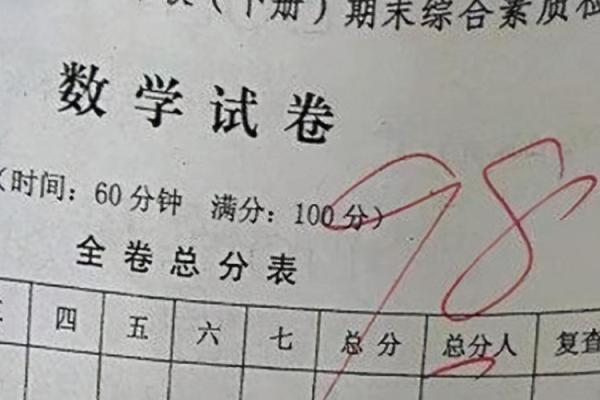 （下册）期末综合素质检
数学试卷
（时间：60分钟 满分：100分）
98
全卷总分表
四 五 六 七 总分 总分人 复查